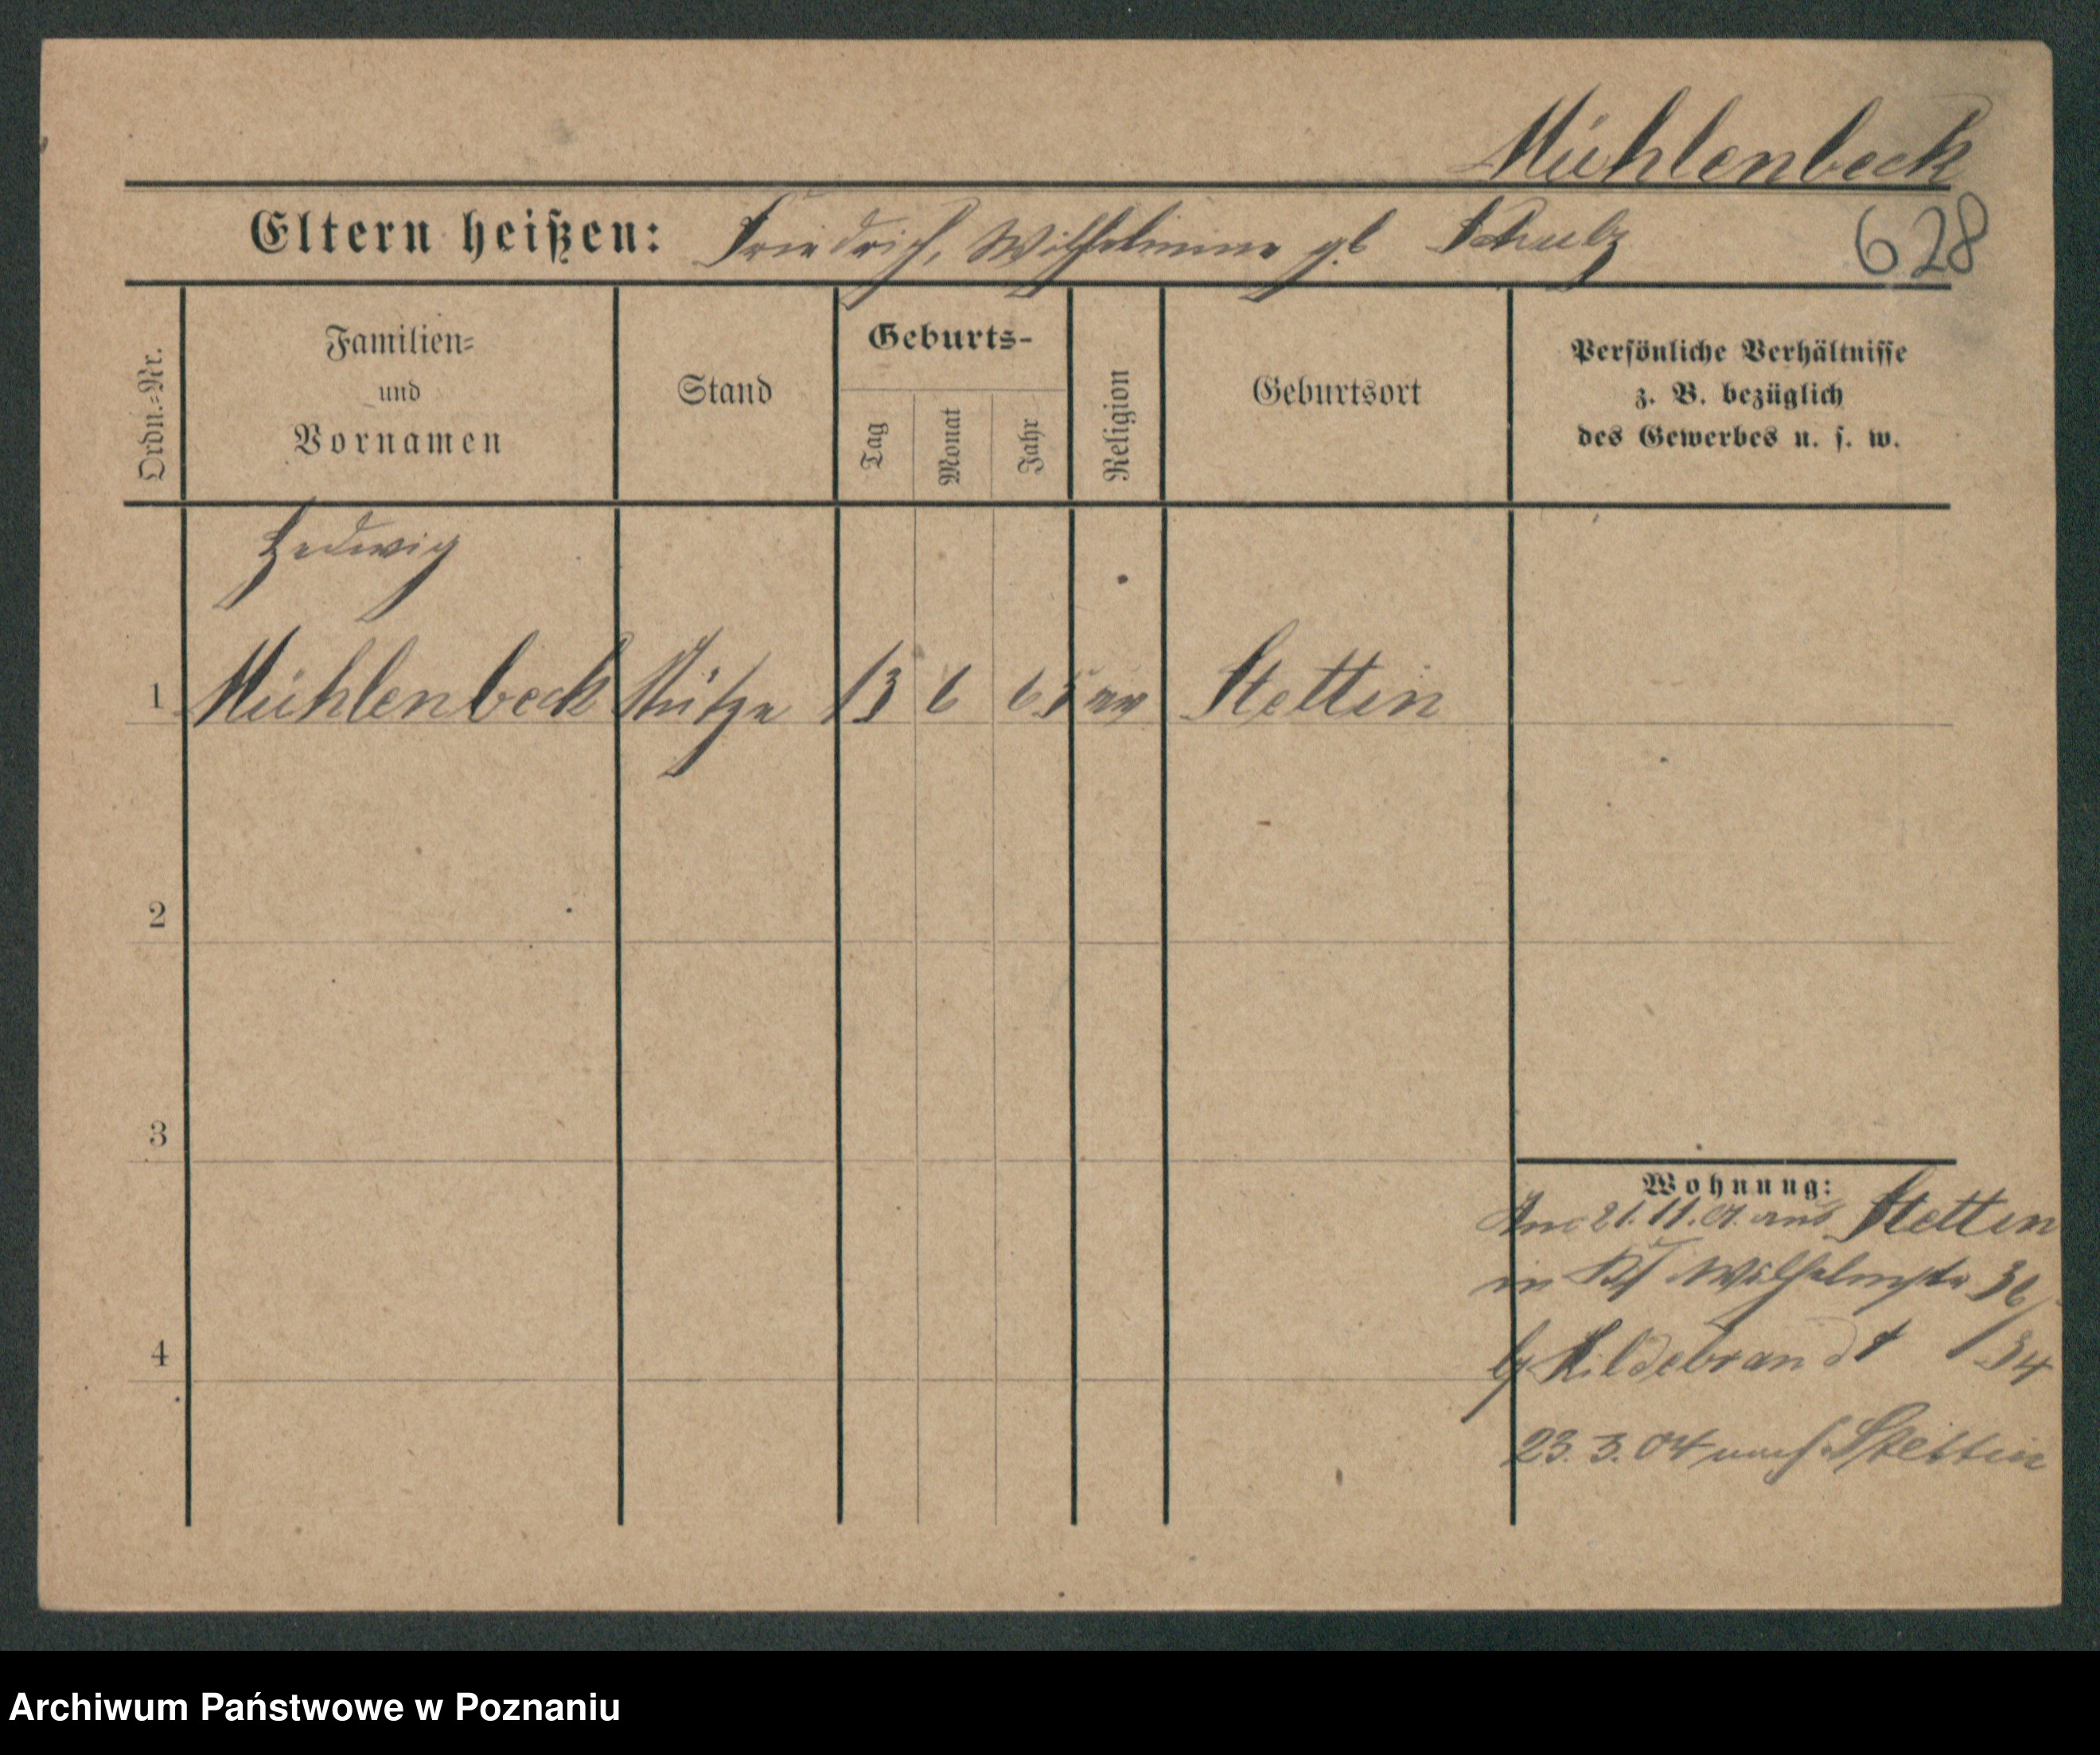 Mühlenbeck
Eltern heißen: Friedrich, Wilhelmine gb Schulz
628
Ordn.-Nr.
Familien-
und
Vornamen
Stand
Geburts-
Tag
Monat
Jahr
Religion
Geburtsort
Persönliche Verhältnisse
z. B. bezüglich
des Gewerbes u. s. w.
Hedwig
1 Mühlenbeck Stütze 13 6 65 ev Stettin
2
3
Wohnung:
Am 21. 11. 01. aus Stettin
in Wilhelmstr 36/
4
b/ Hildebrandt 134
23. 3. 04 nach Stettin
Archiwum Państwowe w Poznaniu